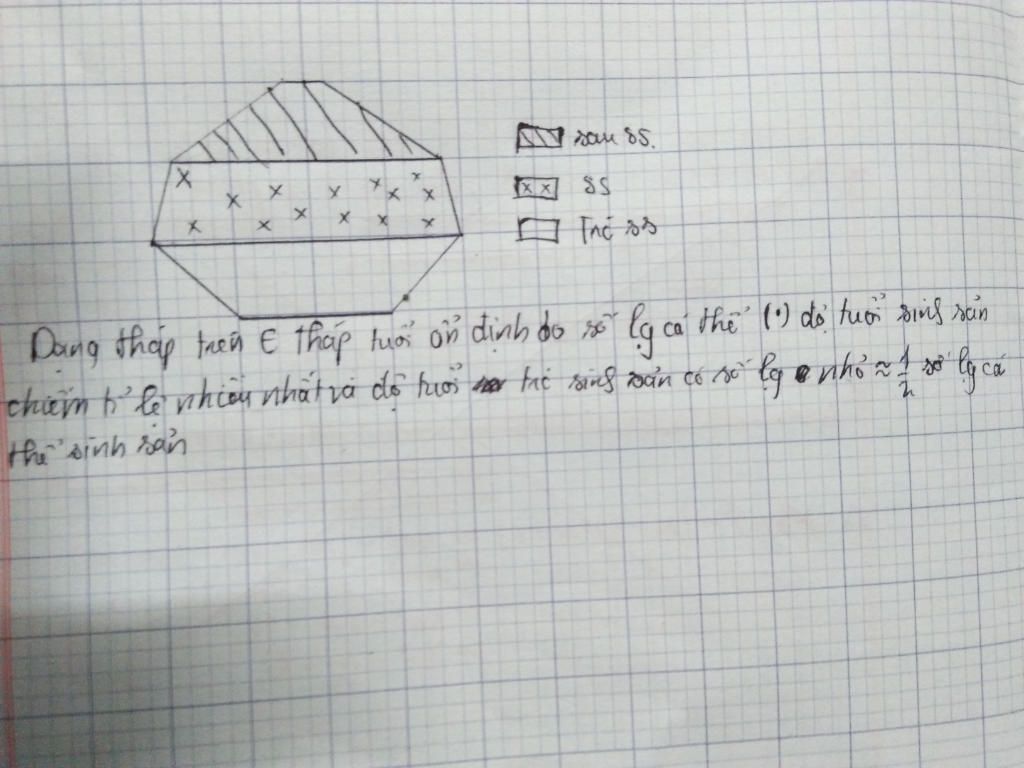 sau ss.
ss
Trc ss
Dạng tháp trên ∈ tháp tuổi ổn định do số lg cá thể (.) độ tuổi sinh sản
chiếm tỉ lệ nhiều nhất và độ tuổi trc sinh sản có số lg nhỏ ≈ 1/2 số lg cá
thể sinh sản